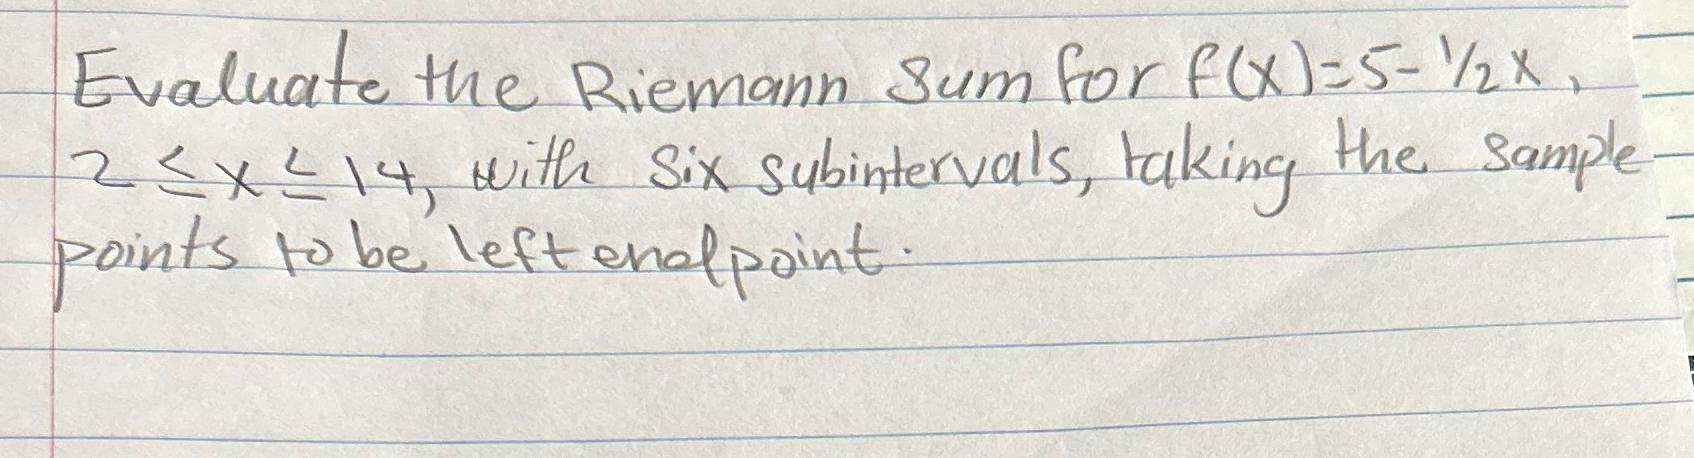 Evaluate the Riemann Sum for f(x)=5-1/2x,
2 ≤ x ≤ 14, with six subintervals, taking the sample
points to be left endpoint.